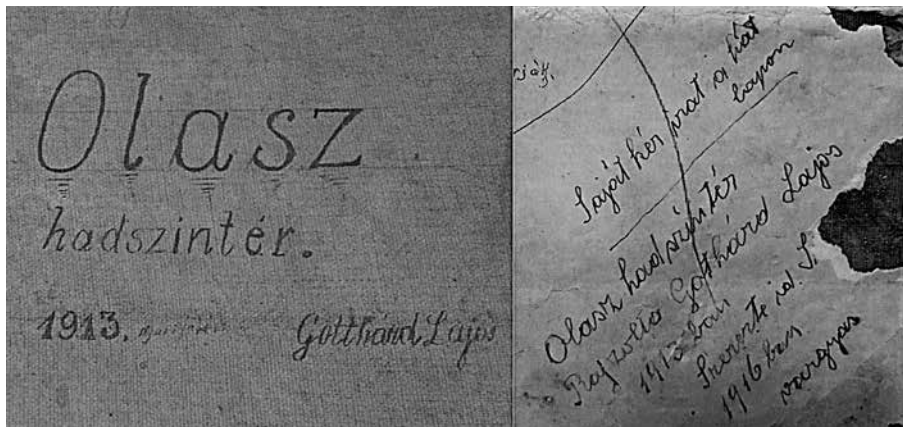 Olasz
hadszintér.
1913.
Gotthárd Lajos
Saját kéz irat a hát
lapon
Olasz hadszintér
Rajzolta Gotthárd Lajos
1913 ban
Szerezte id. S.
1916 ban
vargyas